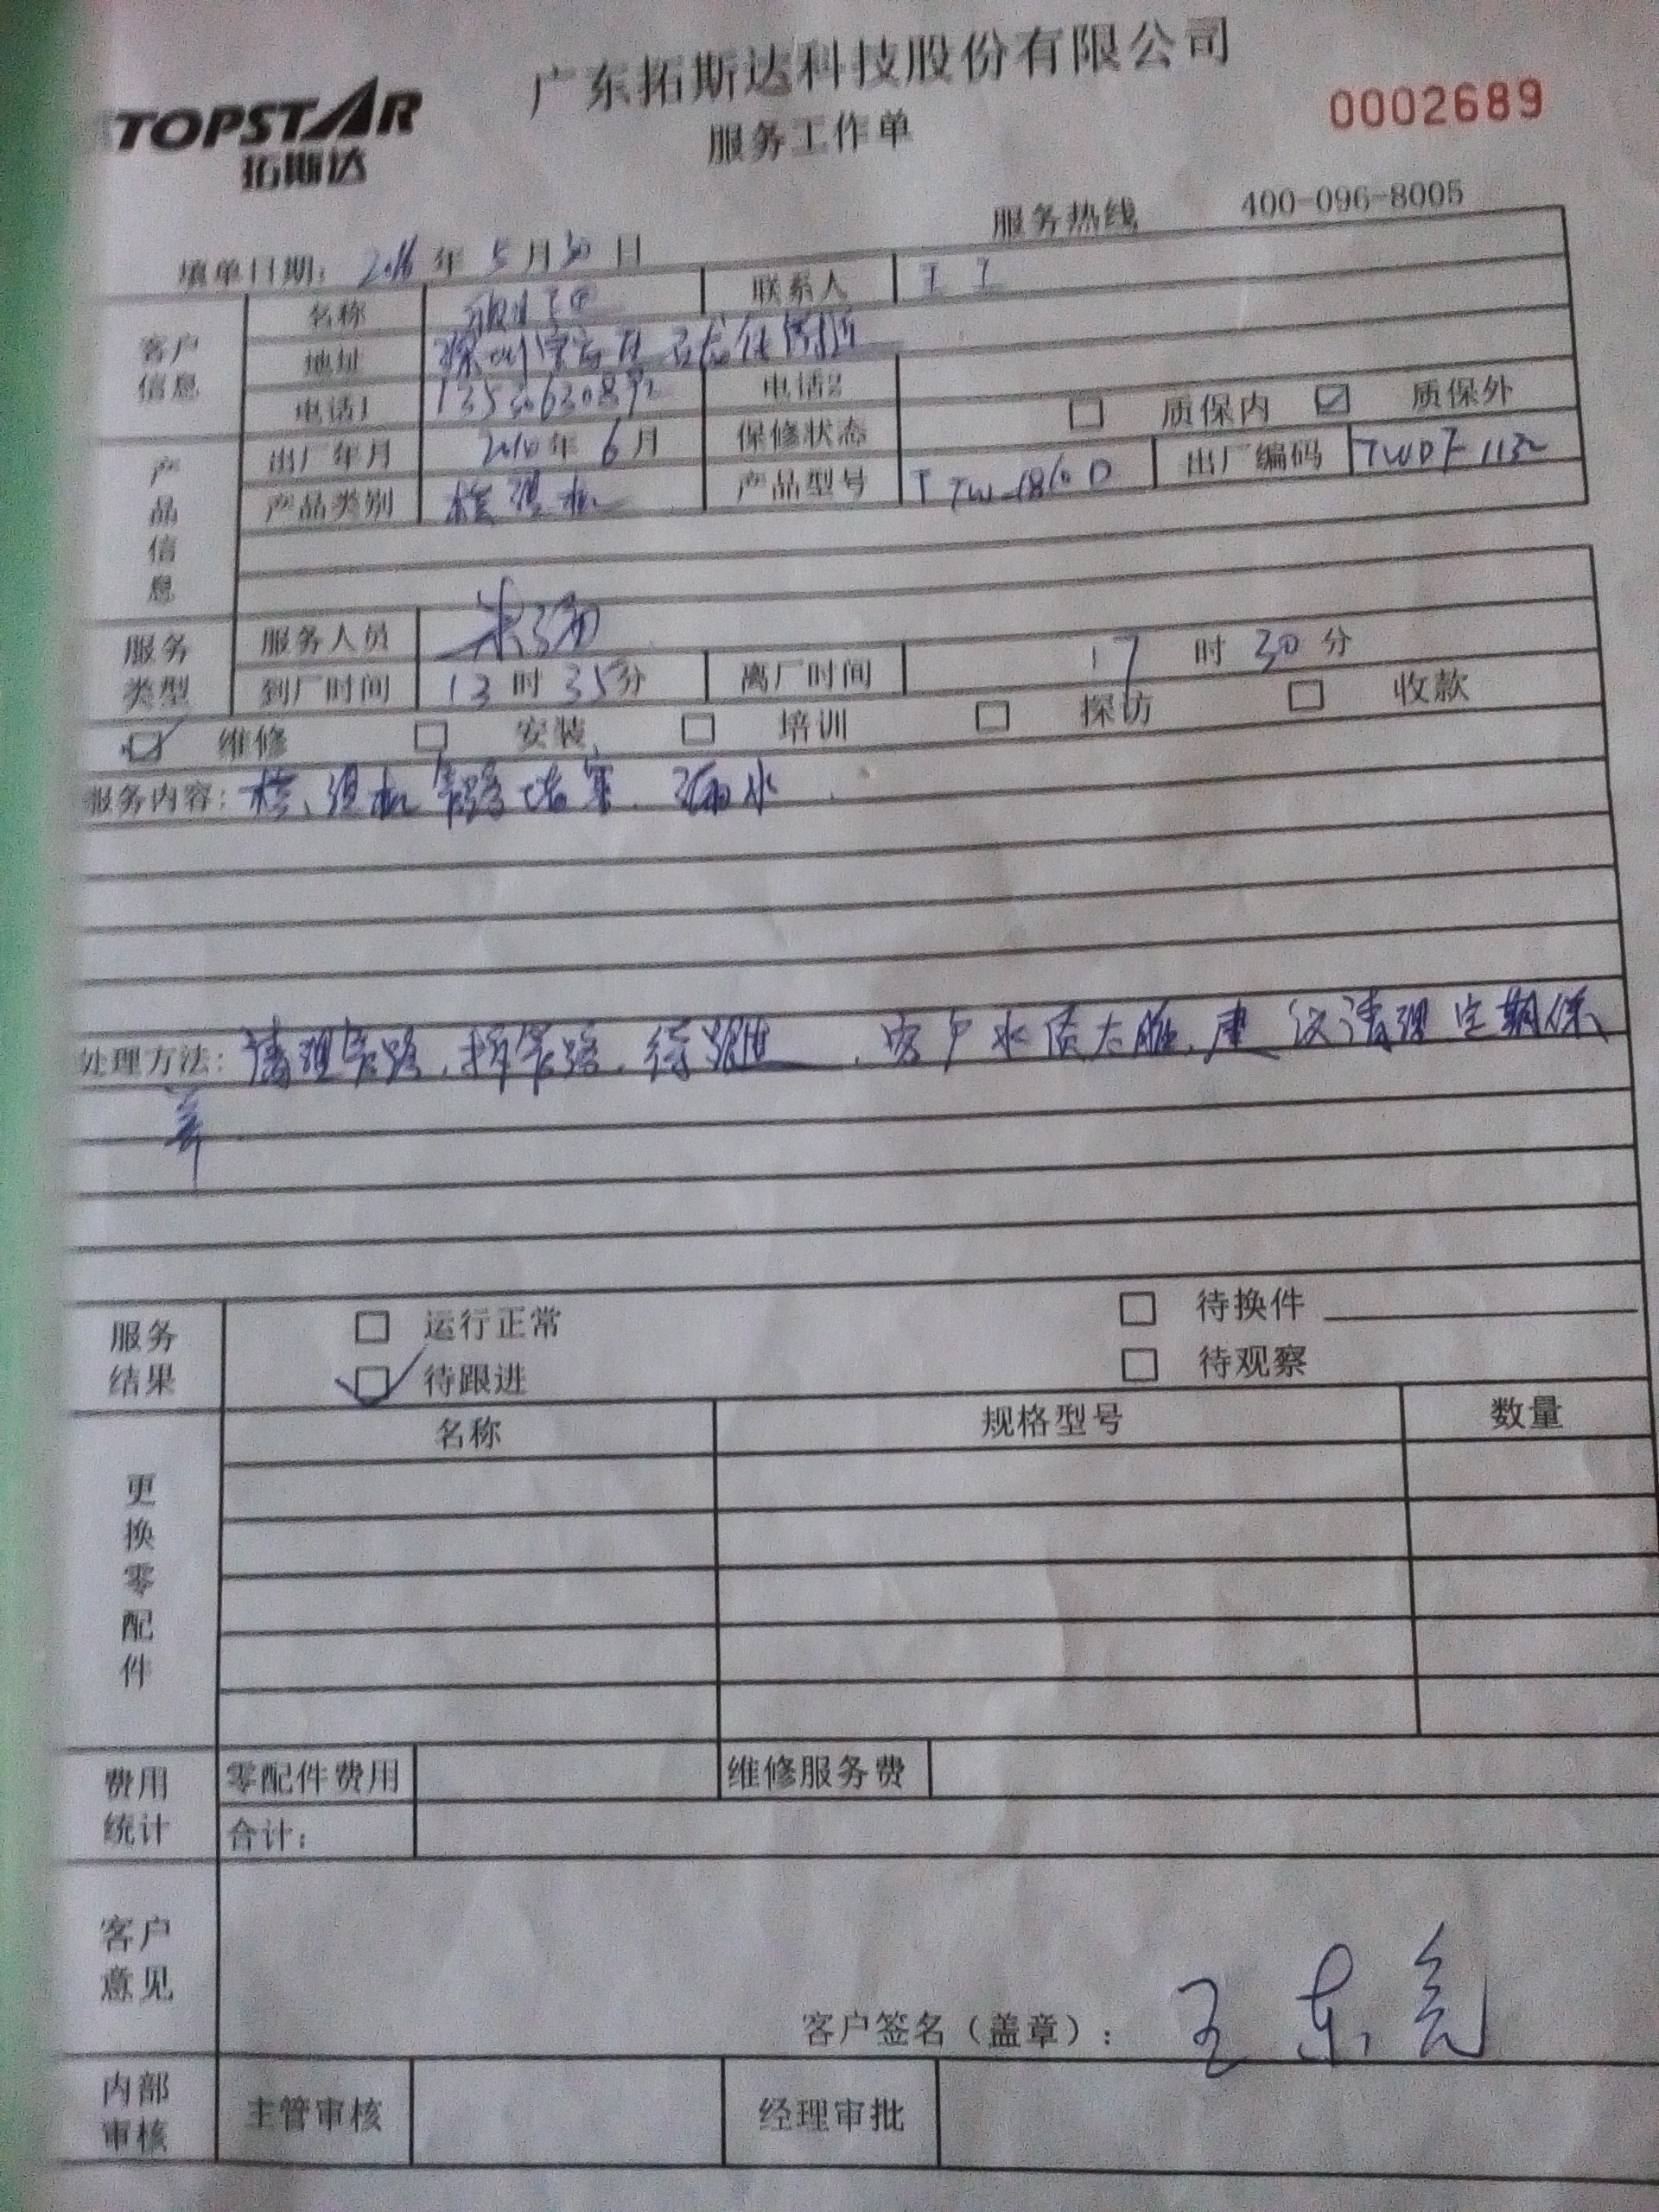 TOPSTAR
拓斯达
广东拓斯达科技股份有限公司
服务工作单
0002689
服务热线 400-096-8005
填单日期: 2016 年 5 月 30 日
客户信息
名称 联系人 王工
地址 深圳宝安区
电话1 13530630892 电话2
产品信息
出厂年月 2010年 6月 保修状态 □ 质保内 ☑ 质保外
产品类别 模温机 产品型号 出厂编码 TWDF1132
服务类型
服务人员
到厂时间 13 时 35分 离厂时间 17 时 30 分
☑ 维修 □ 安装 □ 培训 □ 探访 □ 收款
服务内容: 模温机管路堵塞. 漏水.
处理方法: 清理管路. 拆管路. 待跟进. 客户水质太脏. 建议清理定期保
养
服务结果
□ 运行正常 □ 待换件
☑ 待跟进 □ 待观察
更换零配件
名称 规格型号 数量
费用统计
零配件费用 维修服务费
合计:
客户意见
客户签名(盖章): 王东亮
内部审核
主管审核 经理审批